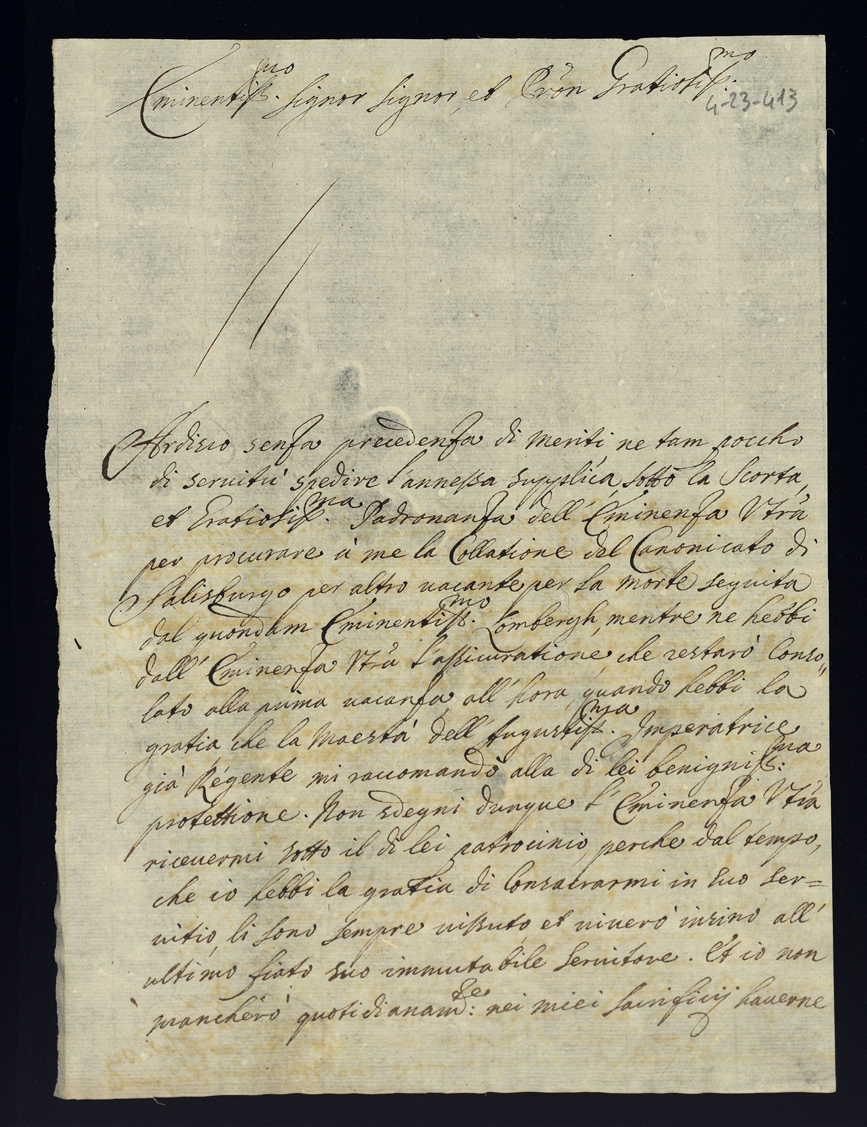 Eminentiss.mo Signor Signor, et Pron Gratiosiss.mo
4-23-413
Ardisco senza precedenza di meriti ne tam pocho
di servitù spedire l'annessa supplica, sotto la Scorta,
et Gratiosiss.ma Padronanza dell'Eminenza Vtrã
per procurare à me la Collatione del Canonicato di
Salisburgo per altro vacante per la morte seguita
dal quondam Eminentiss.mo Lombergh, mentre ne hebbi
dall'Eminenza Vtrã l'assicuratione, che restarò Conso„
lato alla prima vacanza, all'hora, quando hebbi la
gratia che la Maestà dell'Augustiss.ma Imperatrice
già Regente mi raccomandò alla di lei benigniss:ma
protettione. Non sdegni dunque l'Eminenza Vtrã
ricevermi sotto il di lei patrocinio, perche dal tempo,
che io hebbi la gratia di Consacrarmi in suo ser=
vitio, li sono sempre vissuto et viverò insino all'
ultimo fiato suo immutabile Servitore. Et io non
mancherò quotidianam:te nei miei Sacrificij haverne